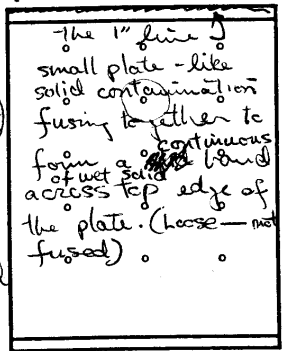 The 1" line
small plate-like
solid contamination
fusing together to
continuous
form a band
of wet solid
across top edge of
the plate. (Loose — not
fused)